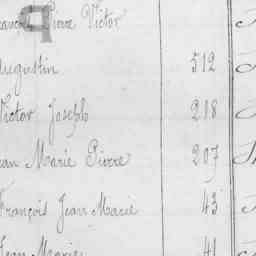 François Pierre Victor
Augustin 512
Victor Joseph 218
Jean Marie Pierre 207
François Jean Marie 43
Jean Marie 41